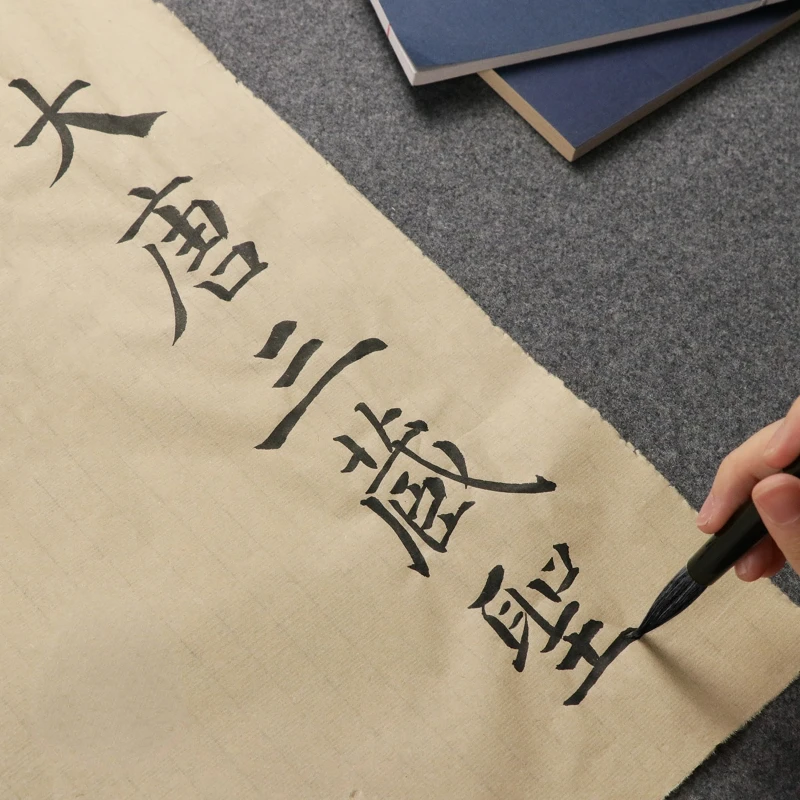 大唐三蔵聖